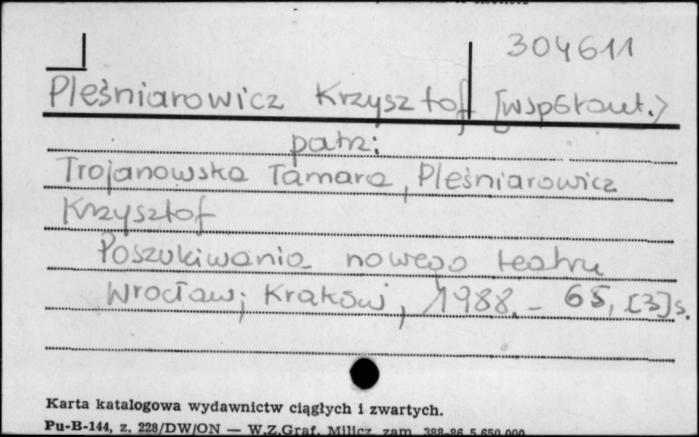 304611
Pleśniarowicz Krzysztof [współaut.>
patrz:
Trojanowska Tamara, Pleśniarowicz
Krzysztof
Poszukiwania nowego teatru
Wrocław; Kraków, 1988. – 65, [3] s.
Karta katalogowa wydawnictw ciągłych i zwartych.
Pu-B-144, z. 228/DW/ON — W.Z.Graf. Milicz, zam. 388-86 5.650.000